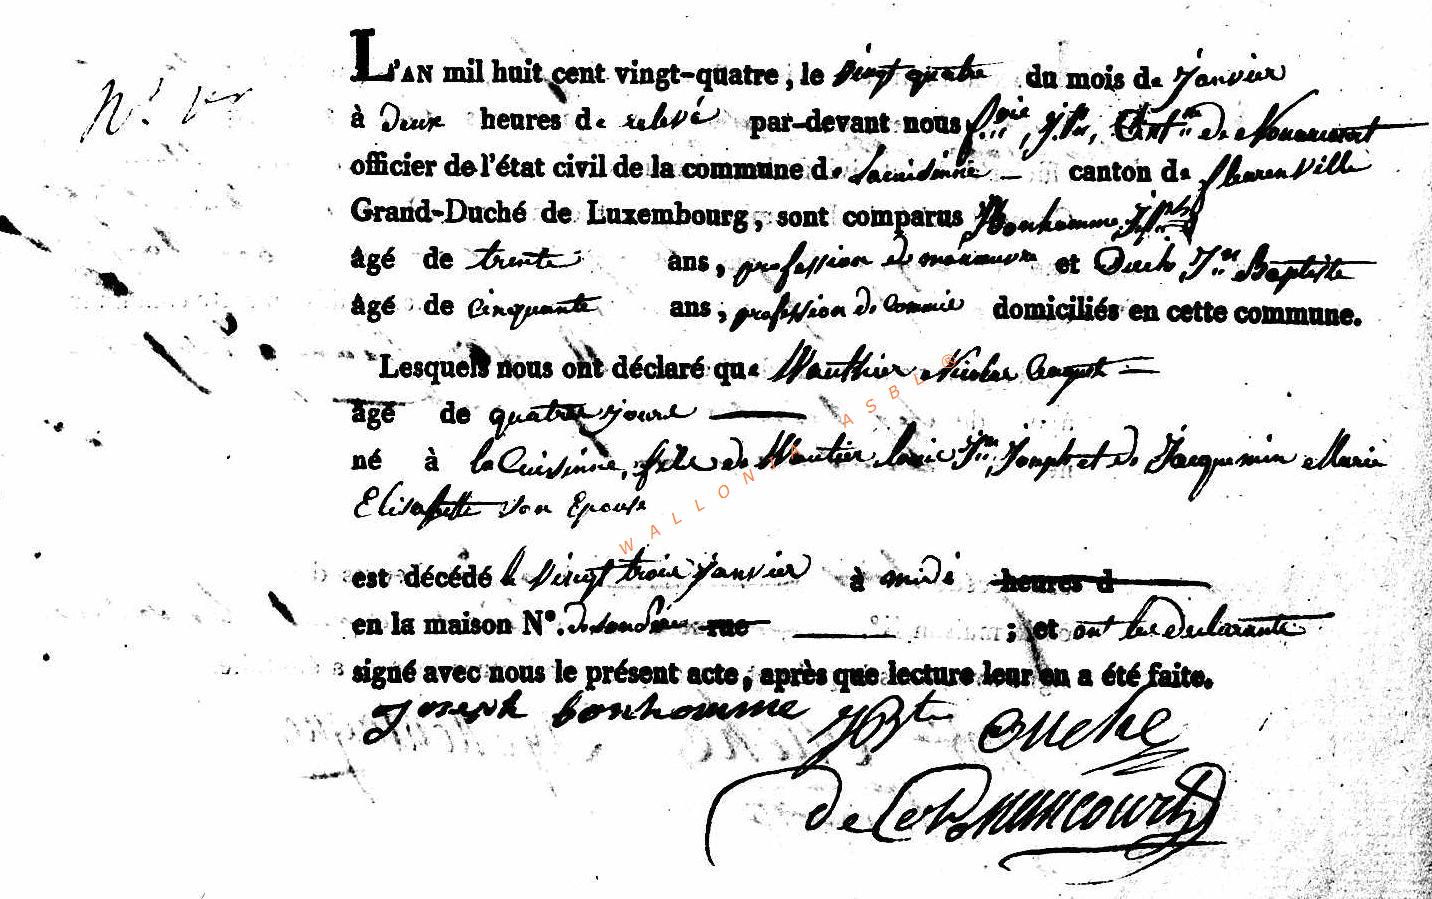 N.º 1er
L'AN mil huit cent vingt-quatre, le vingt quatre du mois de janvier
à deux heures de relevé par-devant nous
officier de l'état civil de la commune de Lacuisinne canton de florenville
Grand-Duché de Luxembourg, sont comparus Bonhomme
âgé de trente ans, profession de manœuvre et Ouche, Jn Baptiste
âgé de cinquante ans, profession de domiciliés en cette commune.
Lesquels nous ont déclaré que Wauthier Nicolas August
âgé de quatre jours
né à la Cuisinne, fils de Wautier louis Jn Joseph et de Jacquemin Marie
Elisabette son Epouse
est décédé le vingt trois janvier à midi heures d
en la maison N°. rue ; et ont les declarants
signé avec nous le présent acte, après que lecture leur en a été faite.
joseph bonhomme JBte ouche
de
WALLONIA ASBL ®